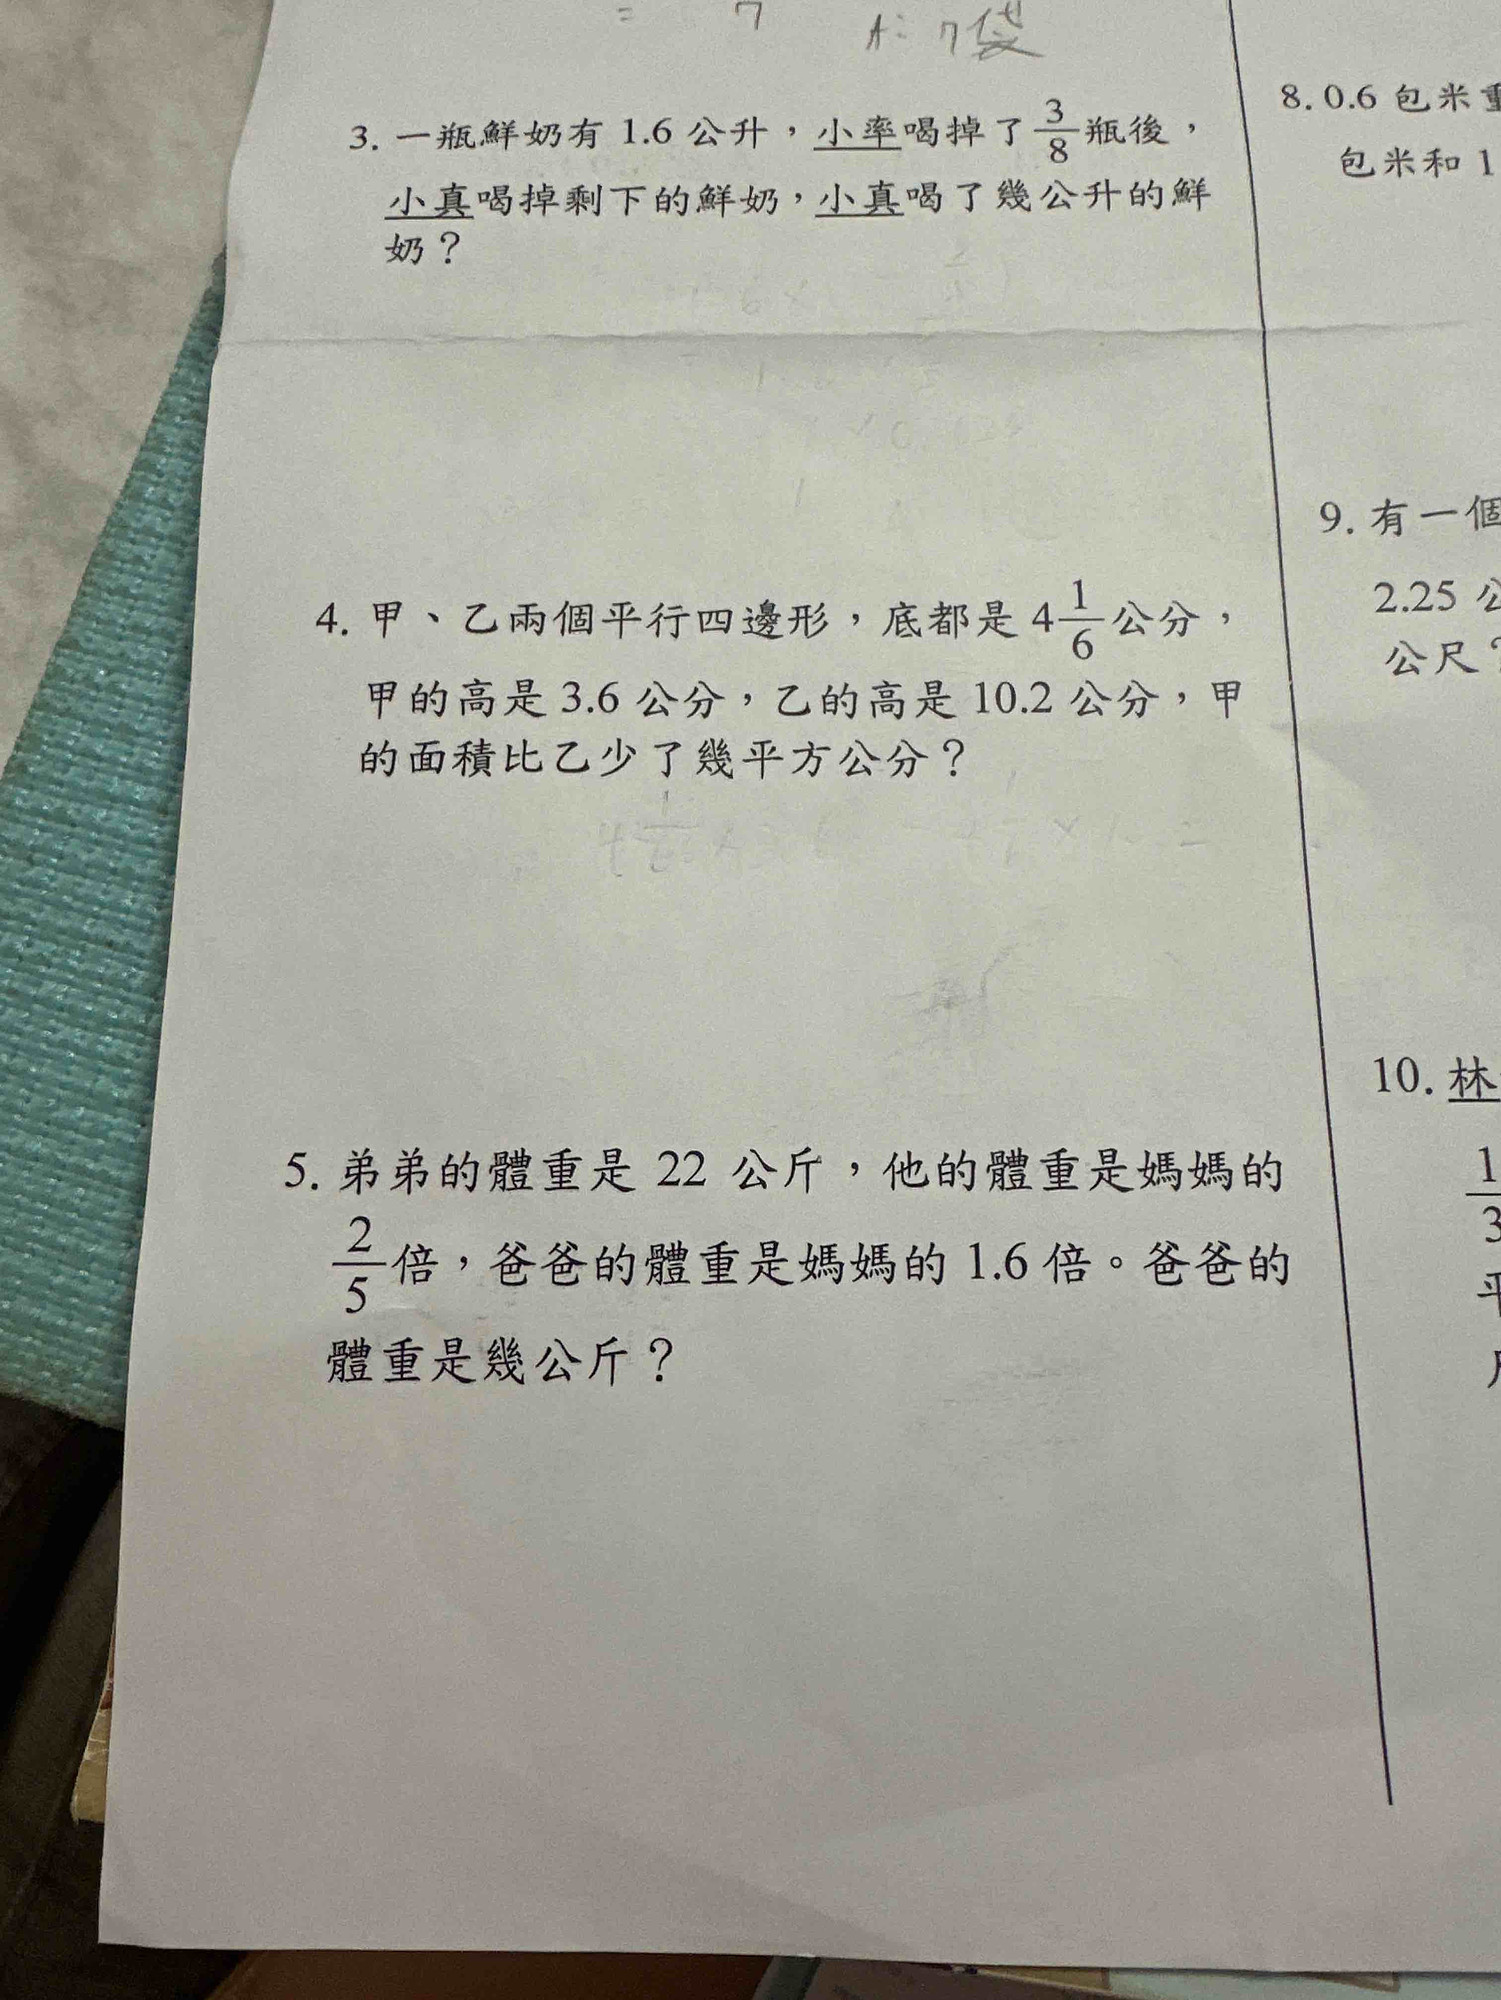 = 7
A: 7袋
3. 一瓶鮮奶有 1.6 公升，小率喝掉了 3/8 瓶後，
小真喝掉剩下的鮮奶，小真喝了幾公升的鮮
奶？
4. 甲、乙兩個平行四邊形，底都是 4 1/6 公分，
甲的高是 3.6 公分，乙的高是 10.2 公分，甲
的面積比乙少了幾平方公分？
5. 弟弟的體重是 22 公斤，他的體重是媽媽的
2/5 倍，爸爸的體重是媽媽的 1.6 倍。爸爸的
體重是幾公斤？
8. 0.6 包米重
包米和 1
9. 有一個
2.25 公
公尺？
10. 林
1/3
平